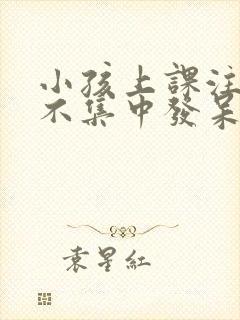 小孩上課注
不集中發呆
袁星紅